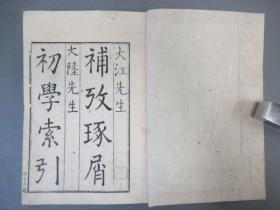 大江先生
補攷琢屑
大陸先生
初學索引